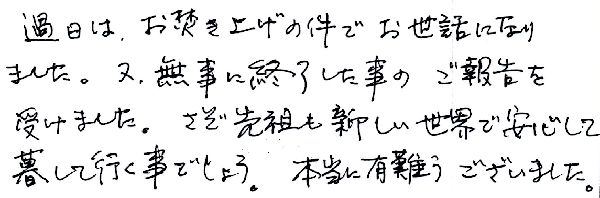 過日は、お焚き上げの件でお世話になり
ました。又、無事に終了した事の ご報告を
受けました。さぞ先祖も新しい世界で安心して
暮して行く事でしょう。 本当に有難う ございました。